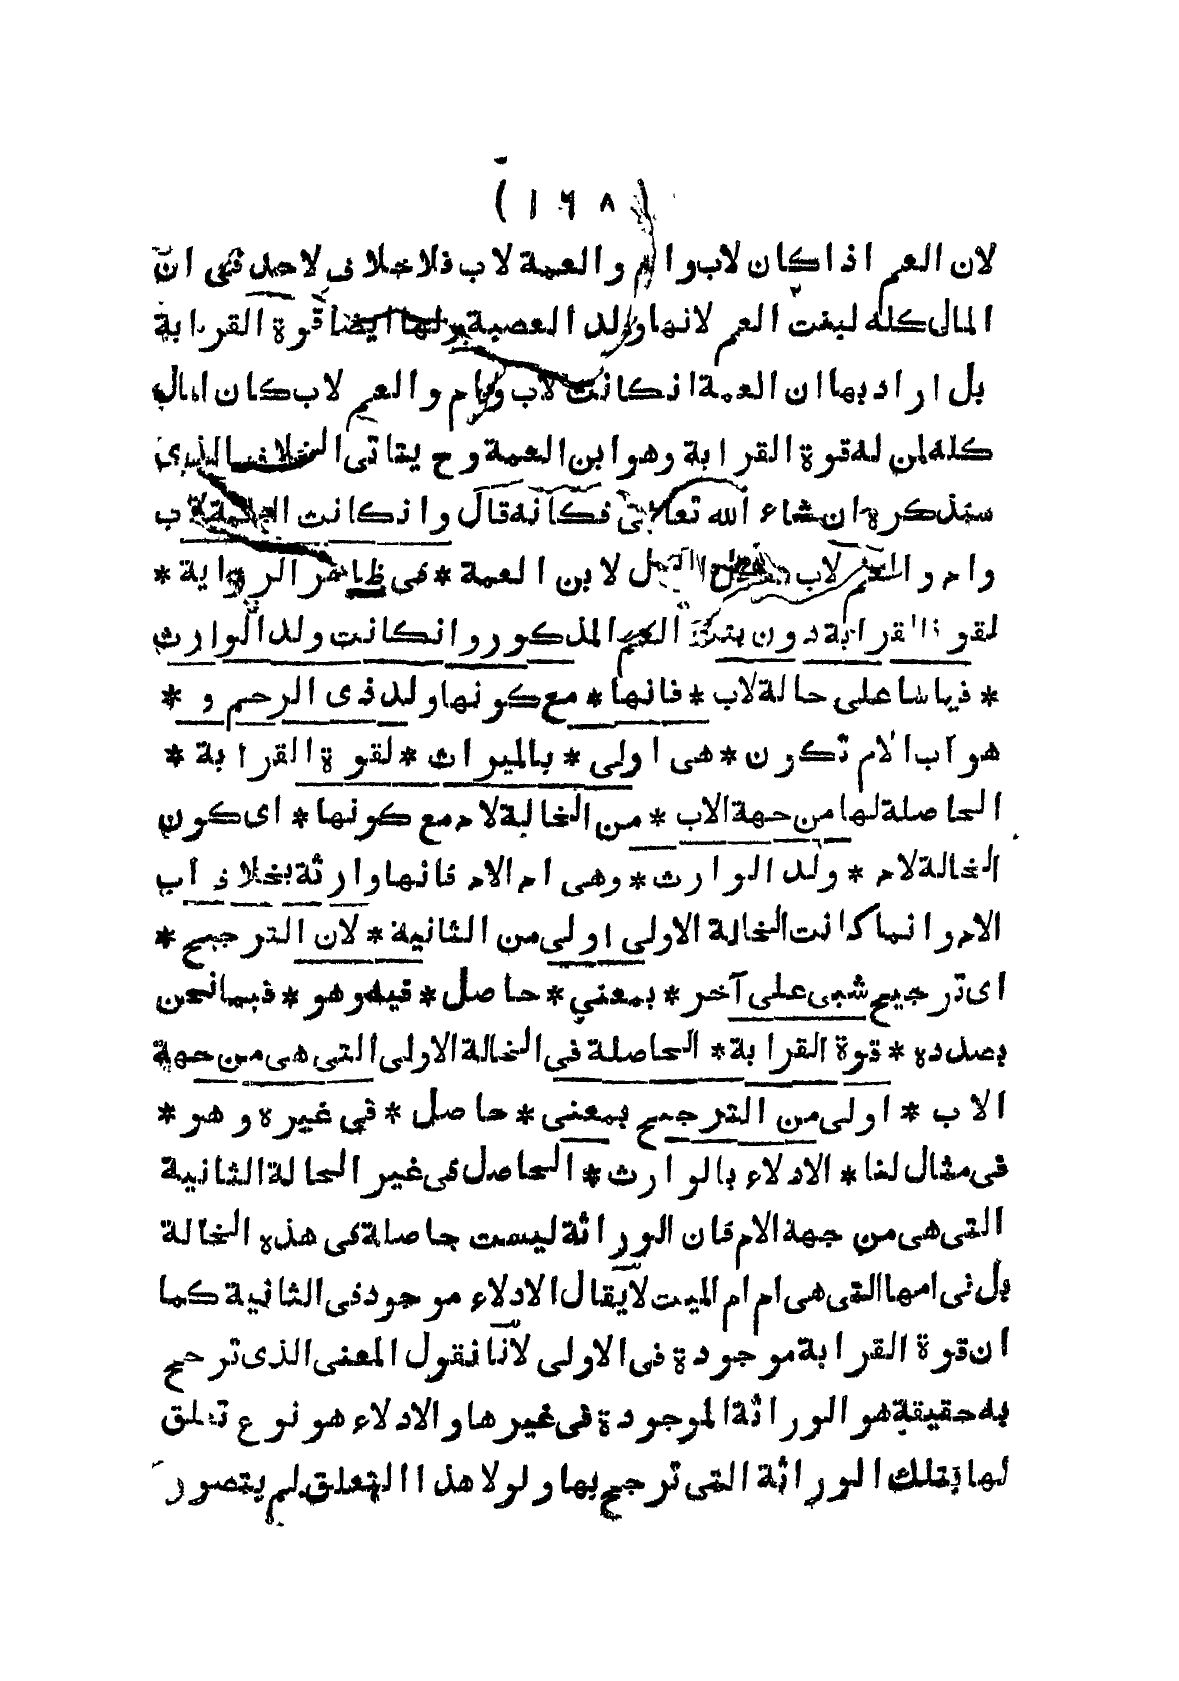 (١٦٨)
لان العم اذا كان لاب وام والعمة لاب فلا خلاف لاحد فى ان
المال كله لبنت العم لانها ولد العصبة ولها ايضا قوة القرابة
بل اراد بها ان العمة انكانت لاب وام والعم لاب كان المال
كله لمن له قوة القرابة وهو ابن العمة وح يتاتى الخلاف الذى
سنذكره ان شاء الله تعالى فكانه قال وانكانت العمة لاب
وام والعم لاب المال لابن العمة * فى ظاهر الرواية *
لقوة القرابة دون بنت العم المذكور وانكانت ولد الوارث
* قياسا على خالة لاب * فانها * مع كونها ولد ذى الرحم و *
هو اب الام تكون * هى اولى * بالميراث * لقوة القرابة *
الحاصلة لها من جهة الاب * من الخالة لام مع كونها * اى كون
الخالة لام * ولد الوارث * وهى ام الام فانها وارثة بخلاف اب
الام وانما كانت الخالة الاولى اولى من الثانية * لان الترجيح *
اى ترجيح شيى على آخر * بمعنى * حاصل * فيه وهو * فيما نحن
بصدده * قوة القرابة * الحاصلة فى الخالة الاولى التى هى من جهة
الاب * اولى من الترجيح بمعنى * حاصل * فى غيره وهو *
فى مثال لنا * الادلاء بالوارث * الحاصل فى غير الخالة الثانية
التى هى من جهة الام فان الوراثة ليست حاصلة فى هذه الخالة
بل فى امها التى هى ام ام الميت لا يقال الادلاء موجود فى الثانية كما
ان قوة القرابة موجودة فى الاولى لانا نقول المعنى الذى ترجح
به حقيقة هو الوراثة الموجودة فى غيرها والادلاء هو نوع تعلق
لها بتلك الوراثة التى ترجح بها ولولا هذا التعلق لم يتصور